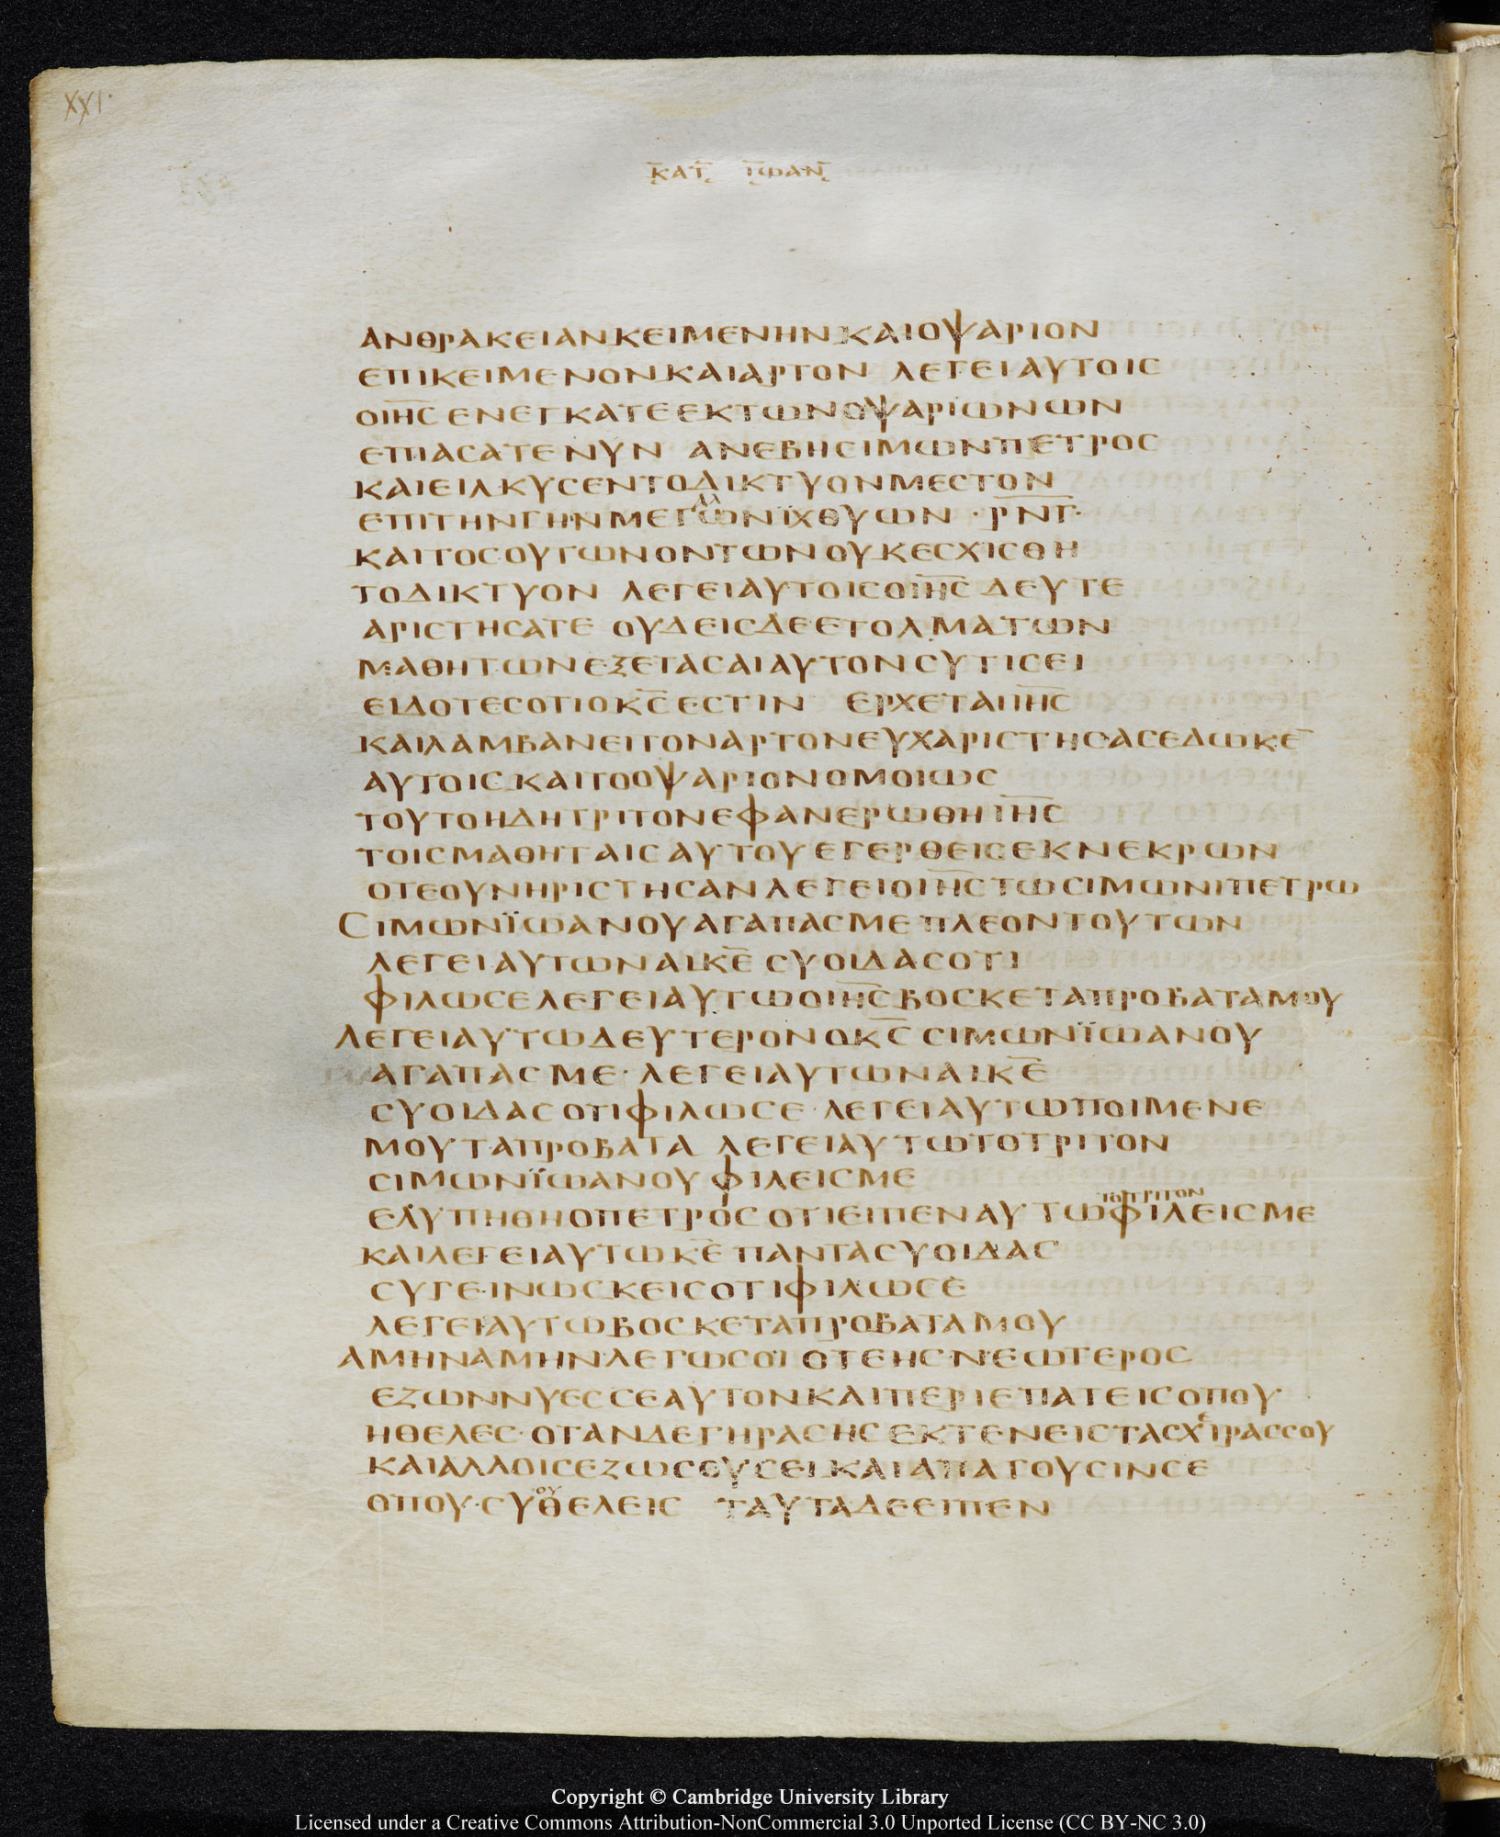 XXI·
ΚΑΤ ΙΩΑΝ
ΑΝΘΡΑΚΕΙΑΝΚΕΙΜΕΝΗΝΚΑΙΟΨΑΡΙΟΝ
ΕΠΙΚΕΙΜΕΝΟΝΚΑΙΑΡΤΟΝ ΛΕΓΕΙΑΥΤΟΙC
ΟΙΗC ΕΝΕΓΚΑΤΕΕΚΤΩΝΟΨΑΡΙΩΝΩΝ
ΕΠΙΑCΑΤΕΝΥΝ ΑΝΕΒΗCΙΜΩΝΠΕΤΡΟC
ΚΑΙΕΙΛΚΥCΕΝΤΟΔΙΚΤΥΟΝΜΕCΤΟΝ
ΕΠΙΤΗΝΓΗΝΜΕΓΑΛΩΝΙΧΘΥΩΝ · ΡΝΓ·
ΚΑΙΤΟCΟΥΤΩΝΟΝΤΩΝΟΥΚΕCΧΙCΘΗ
ΤΟΔΙΚΤΥΟΝ ΛΕΓΕΙΑΥΤΟΙCΟΙΗC ΔΕΥΤΕ
ΑΡΙCΤΗCΑΤΕ ΟΥΔΕΙCΔΕΕΤΟΛΜΑΤΩΝ
ΜΑΘΗΤΩΝΕΞΕΤΑCΑΙΑΥΤΟΝCΥΤΙCΕΙ
ΕΙΔΟΤΕCΟΤΙΟΚC ΕCΤΙΝ ΕΡΧΕΤΑΙΙΗC
ΚΑΙΛΑΜΒΑΝΕΙΤΟΝΑΡΤΟΝΕΥΧΑΡΙCΤΗCΑCΕΔΩΚΕ̅
ΑΥΤΟΙC ΚΑΙΤΟΟΨΑΡΙΟΝΟΜΟΙΩC
ΤΟΥΤΟΗΔΗΤΡΙΤΟΝΕΦΑΝΕΡΩΘΗΙΗC
ΤΟΙCΜΑΘΗΤΑΙCΑΥΤΟΥΕΓΕΡΘΕΙCΕΚΝΕΚΡΩΝ
ΟΤΕΟΥΝΗΡΙCΤΗCΑΝΛΕΓΕΙΟΙΗCΤΩCΙΜΩΝΙΠΕΤΡΩ
CΙΜΩΝΪΩΑΝΟΥΑΓΑΠΑCΜΕΠΛΕΟΝΤΟΥΤΩΝ
ΛΕΓΕΙΑΥΤΩΝΑΙΚΕ CΥΟΙΔΑCΟΤΙ
ΦΙΛΩCΕΛΕΓΕΙΑΥΤΩΟΙΗCΒΟCΚΕΤΑΠΡΟΒΑΤΑΜΟΥ
ΛΕΓΕΙΑΥΤΩΔΕΥΤΕΡΟΝΟΚC CΙΜΩΝΪΩΑΝΟΥ
ΑΓΑΠΑCΜΕ· ΛΕΓΕΙΑΥΤΩΝΑΙΚΕ
CΥΟΙΔΑCΟΤΙΦΙΛΩCΕ·ΛΕΓΕΙΑΥΤΩΠΟΙΜΕΝΕ
ΜΟΥΤΑΠΡΟΒΑΤΑ ΛΕΓΕΙΑΥΤΩΤΟΤΡΙΤΟΝ
CΙΜΩΝΪΩΑΝΟΥΦΙΛΕΙCΜΕ
ΤΟΤΡΙΤΟΝ
ΕΛΥΠΗΘΗΟΠΕΤΡΟCΟΤΙΕΙΠΕΝΑΥΤΩΦΙΛΕΙCΜΕ
ΚΑΙΛΕΓΕΙΑΥΤΩΚΕΠΑΝΤΑCΥΟΙΔΑC
CΥΓΕΙΝΩCΚΕΙCΟΤΙΦΙΛΩCΕ
ΛΕΓΕΙΑΥΤΩΒΟCΚΕΤΑΠΡΟΒΑΤΑΜΟΥ
ΑΜΗΝΑΜΗΝΛΕΓΩCΟΙ ΟΤΕΗCΝΕΩΤΕΡΟC
ΕΖΩΝΝΥΕCCΕΑΥΤΟΝΚΑΙΠΕΡΙΕΠΑΤΕΙCΟΠΟΥ
ΗΘΕΛΕC·ΟΤΑΝΔΕΓΗΡΑCΗCΕΚΤΕΝΕΙCΤΑCΧΕΙΡΑCCΟΥ
ΚΑΙΑΛΛΟΙCΕΖΩCΟΥCΕΙΚΑΙΑΠΑΓΟΥCΙΝCΕ
ΟΠΟΥ·CΥΟΥΘΕΛΕΙC ΤΑΥΤΑΔΕΕΙΠΕΝ
Copyright © Cambridge University Library
Licensed under a Creative Commons Attribution-NonCommercial 3.0 Unported License (CC BY-NC 3.0)